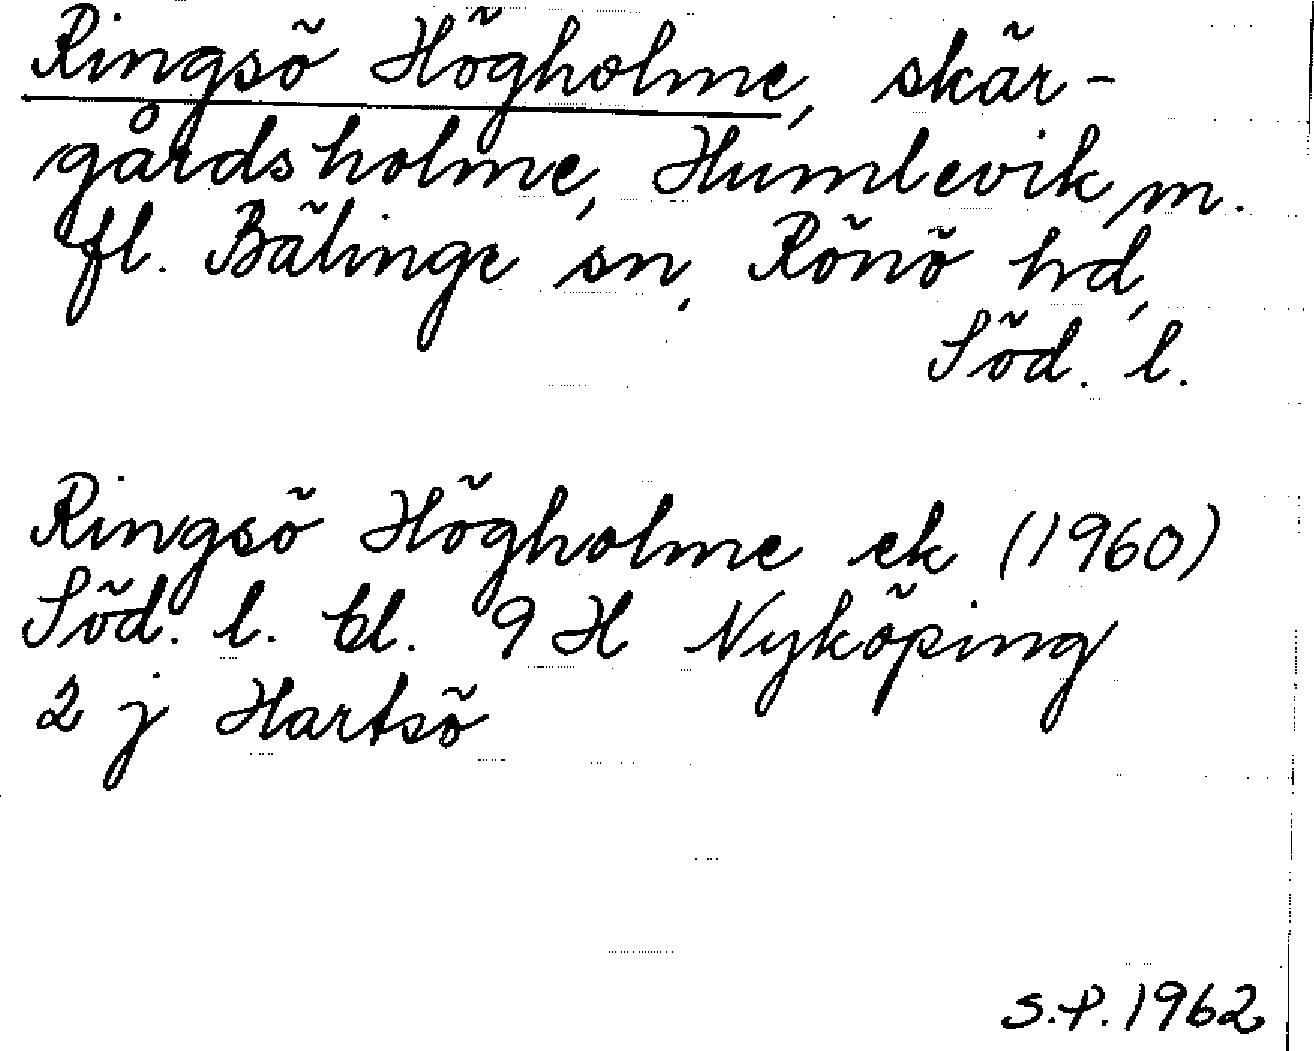 Ringsö Högholme, skär-
gårdsholme, Humlevik, m.
fl. Bälinge sn, Rönö hd,
Söd. l.
Ringsö Högholme ek (1960)
Söd. l. bl. 9 H Nyköping
2 j Hartsö
S.P. 1962